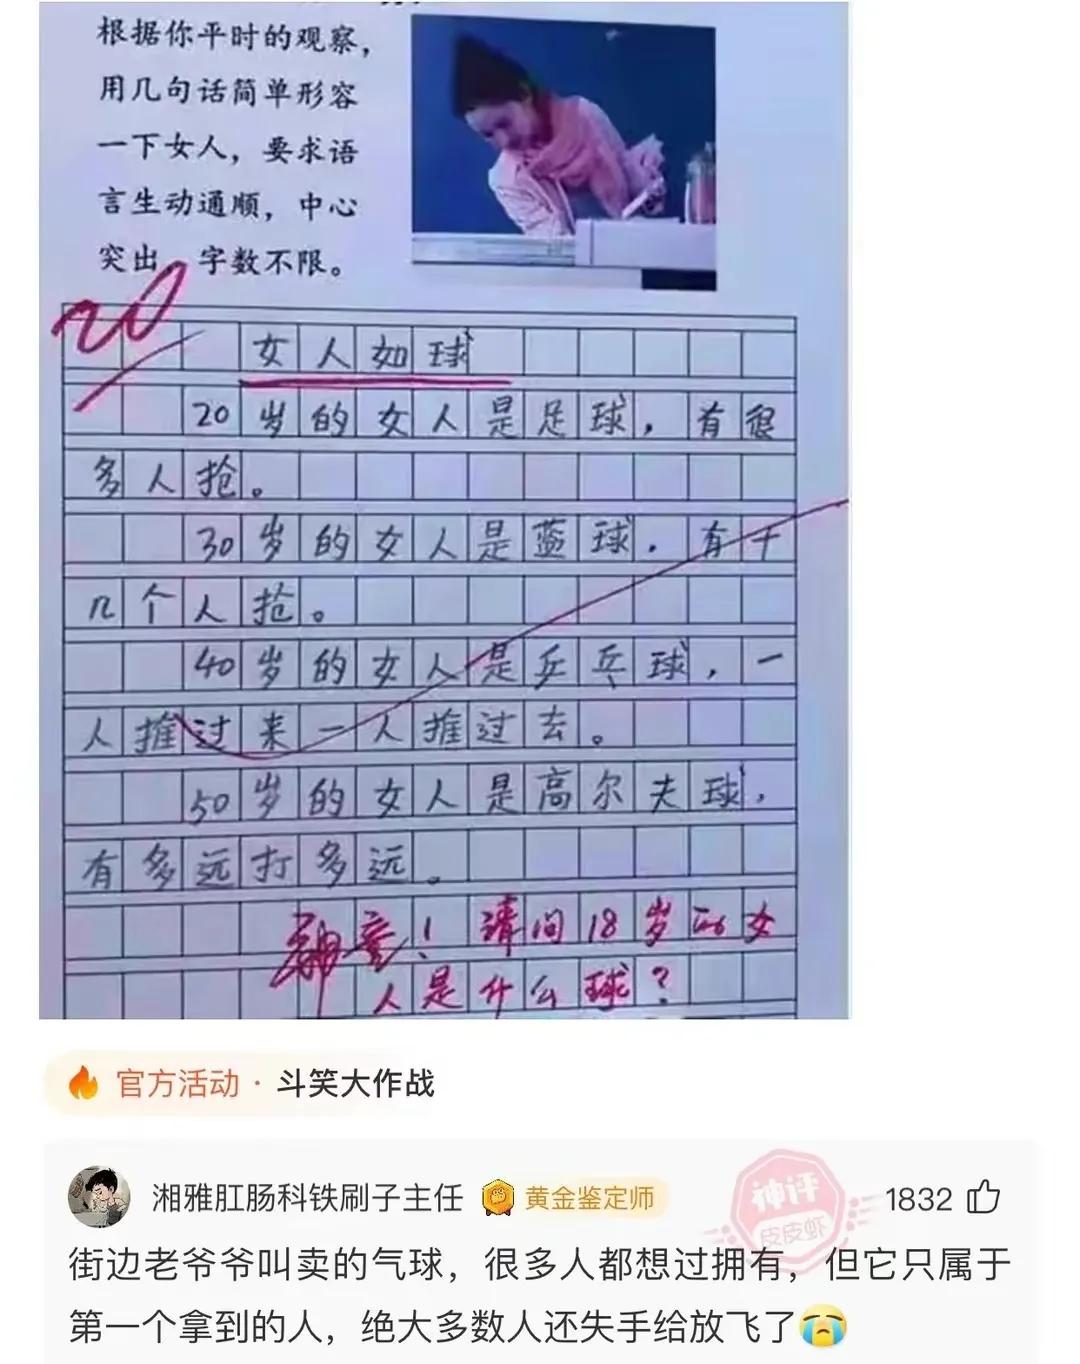 根据你平时的观察，
用几句话简单形容
一下女人，要求语
言生动通顺，中心
突出，字数不限。
20
女人如球
20岁的女人是足球，有很
多人抢。
30岁的女人是蓝球．有十
几个人抢。
40岁的女人是乒乓球，一
人推过来一人推过去。
50岁的女人是高尔夫球，
有多远打多远。
！请问18岁的女
人是什么球？
官方活动 · 斗笑大作战
湘雅肛肠科铁刷子主任 黄金鉴定师 神评 皮皮虾 1832
街边老爷爷叫卖的气球，很多人都想过拥有，但它只属于
第一个拿到的人，绝大多数人还失手给放飞了😭